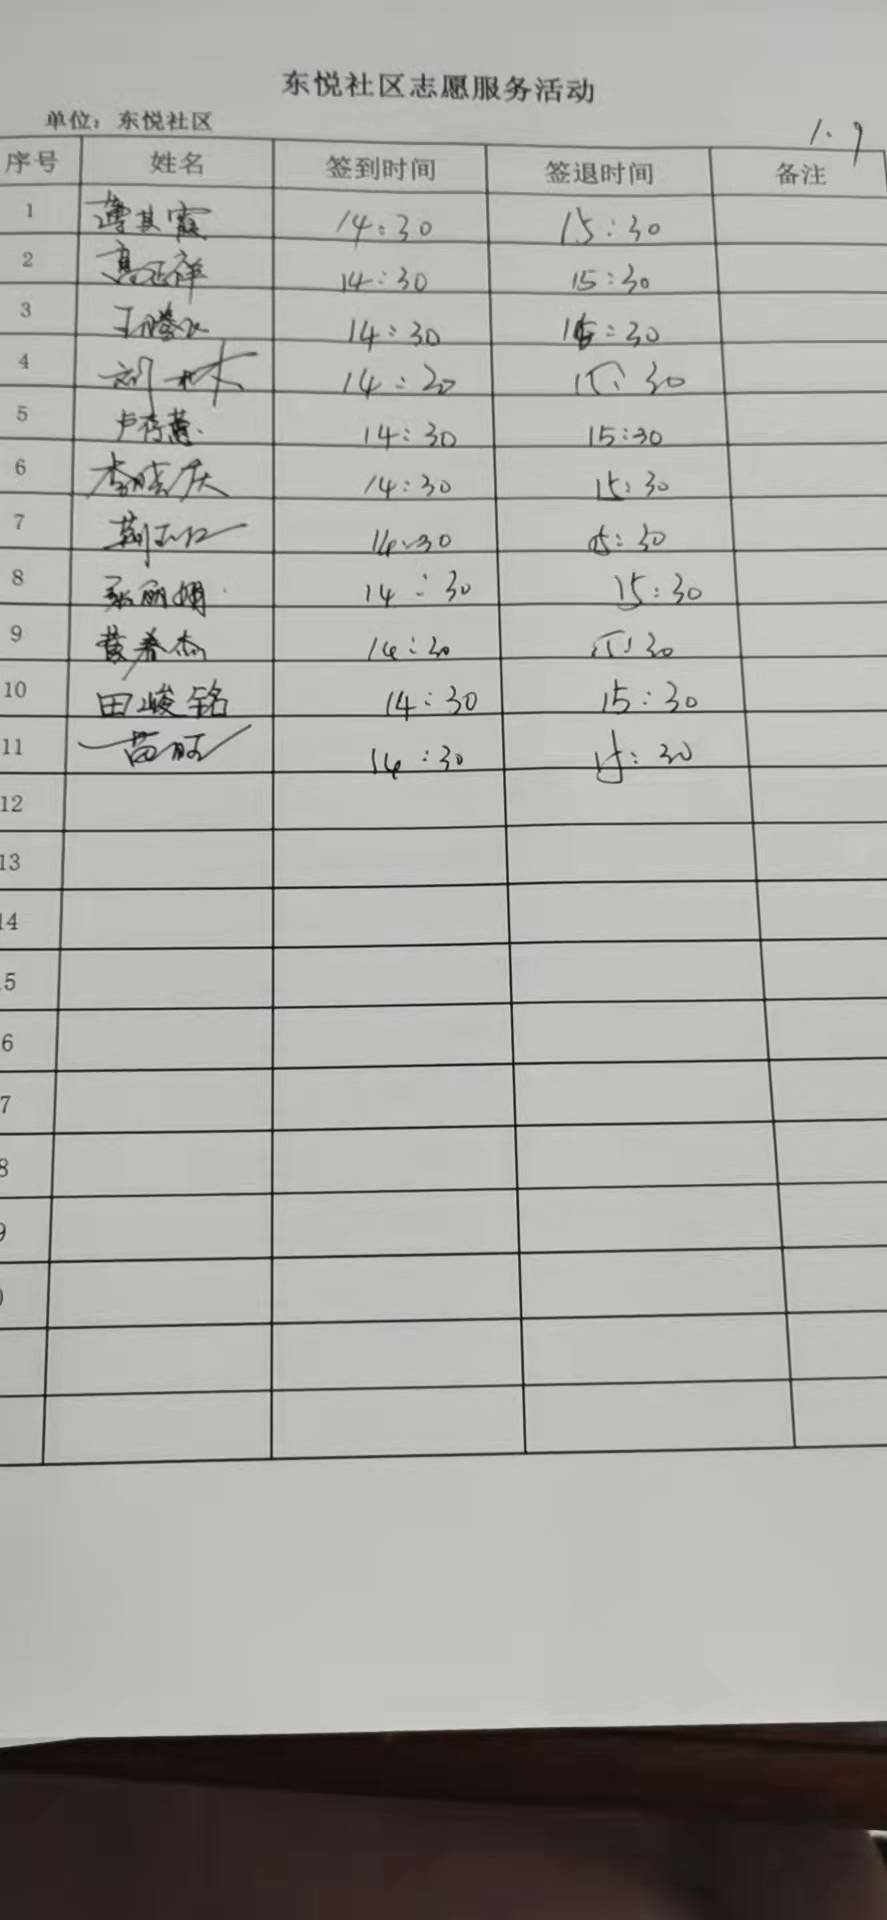 东悦社区志愿服务活动
单位：东悦社区
1.9
序号 姓名 签到时间 签退时间 备注
1 14:30 15:30
2 14:30 15:30
3 14:30 15:30
4 14:20 15:30
5 14:30 15:30
6 李晓庆 14:30 15:30
7 14:30 15:30
8 张丽娟 14:30 15:30
9 黄春杰 14:30 15:30
10 田峻铭 14:30 15:30
11 苗旺 14:30 15:30
12
13
14
5
6
7
8
9